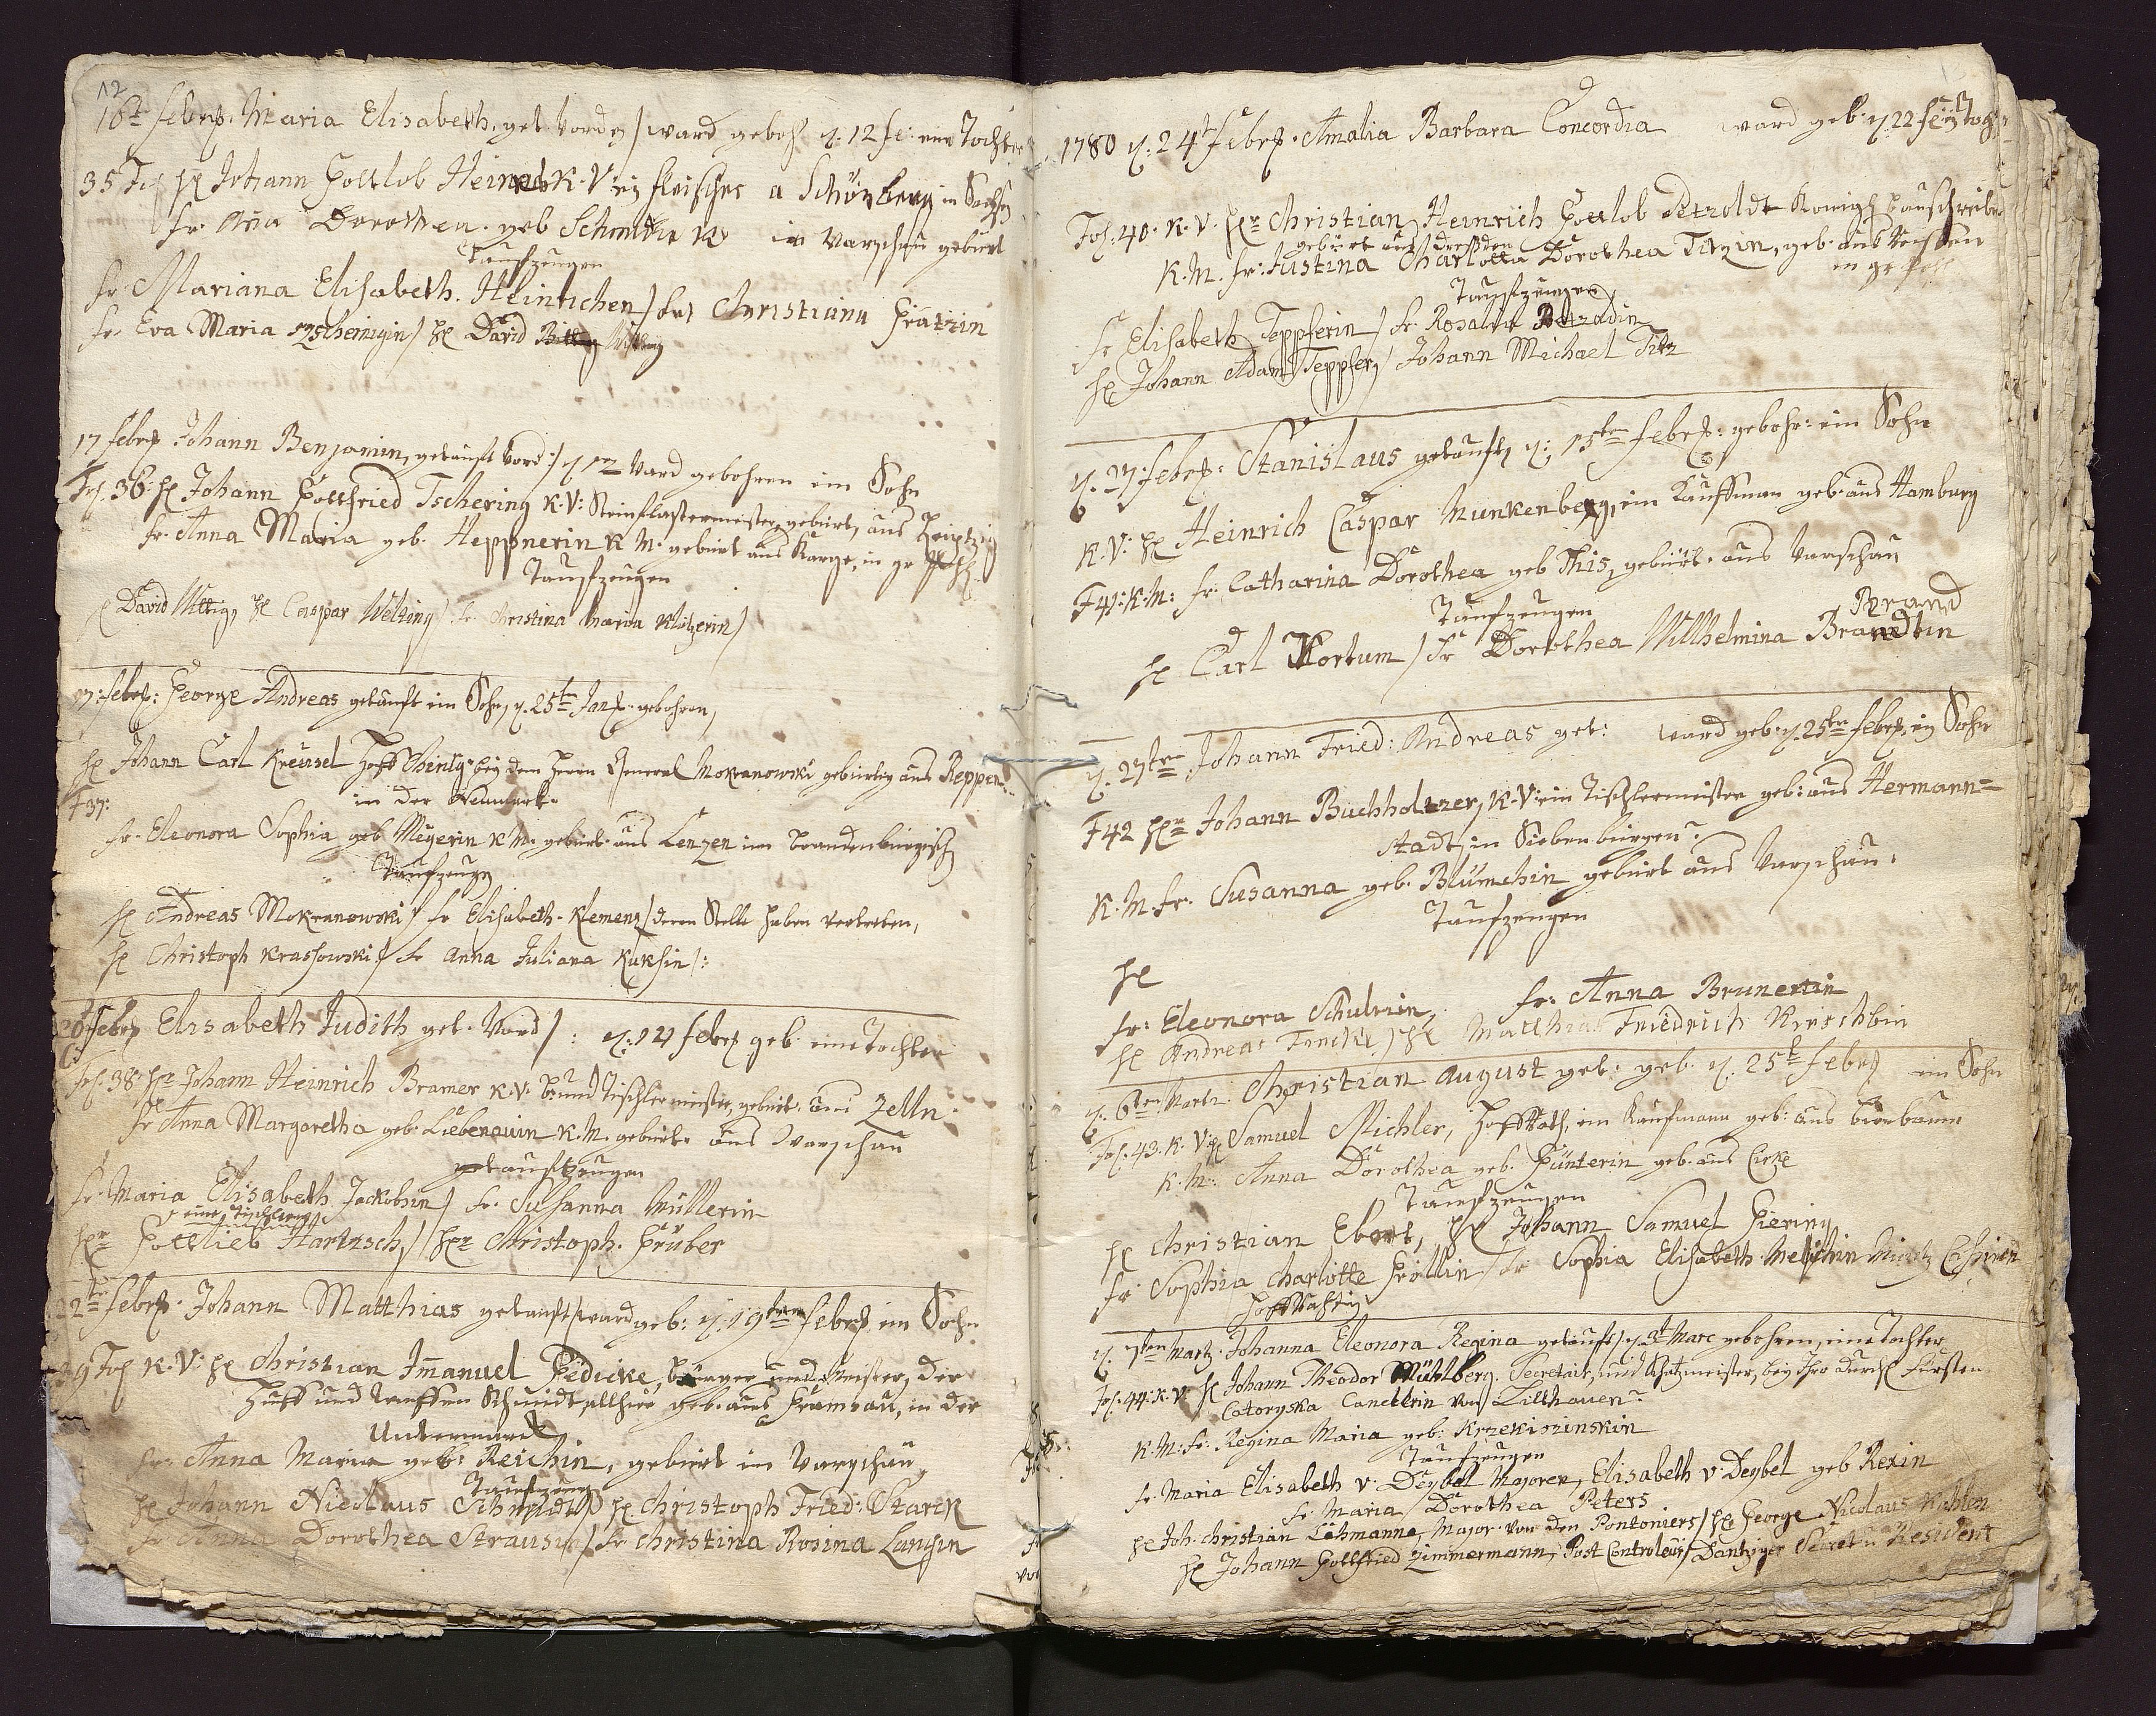 12
16te Febr: Maria Elisabeth, get. word / ward geboh d: 12 fe: eine Tochter
35 Fol H Johann Gottlob Hein K. V ein Fleischer a Schönberg in Sachs
Fr. Ana Dorothea. geb Schmidtin in Warschau gebürt
Taufzeugen
Fr. Mariana Elisabeth. Heintichen / Fr. Christiana Grätzin
Fr. Eva Maria / H David Wittig
17 Febr Johann Benjamin, getauft word: / d 12 ward gebohren ein Sohn
Fol. 36: H Johann Gottfried Tschering K. V: Steinflastermeister, gebürt, aus Leipzig
Fr. Anna Maria geb. Heppnerin K M. gebürt aus Karge, in gr Pohl
Taufzeugen
H David Wittig, H Caspar Welting / Fr. Christina Maria Klützerin /
17: Febr: George Andreas getauft ein Sohn, d. 25te Jan. gebohren,
H Johann Carl Kreusel bey dem Herrn General Mokranowski gebürtig aus Reppen
F 37: in der Neumark.
Fr. Eleonora Sophia geb Meyerin K M. gebürt. aus Lenzen im Brandenburgisch
Taufzeuge
H Andreas Mokranowski / Fr Elisabeth. Klemenz / deren Stelle haben vertreten,
H Christoph Krassowski / Fr Anna Juliana Kuksin /:
20 Febr Elisabeth Judith get. word / : d: 14 Febr geb eine Tochter
Fol. 38: Hr Johann Heinrich Bramer K. V. B: und Tischlermeister, gebürt. aus Zelln.
Fr Anna Margaretha geb: Liebenauin K. M. gebürt. aus Warschau
getauftzeugen
Fr. Maria Elisabeth Jackobin / Fr. Susanna Müllerin
eine Tischlerin
Hr Gottlieb Hartzsch, / Hr Christoph. Gruber
22te Febr. Johann Matthias getauft / ward geb: d: 19ten Febr ein Sohn
39 Fol K. V: H Christian Imanuel Gedicke, Bürger und Meister, der
Huff und Waffen Schmidt, allhier geb: aus Gramzau, in der
Untermarck
Fr. Anna Maria geb: Reichin, gebürt in Warschau,
Taufzeug
H Johann Nicolaus Schmidt / H Christoph Fried: Starck
Fr Anna Dorothea Strausin / Fr Christina Rosina Langin
1780 d: 24t Febr. Amalia Barbara Concordia ward geb: d 22 Fe ein Toch
Fol: 40. K. V. Hr Christian Heinrich Gottlob Petzoldt Königl Bauschreiber
gebürt aus Dresden
K. M. Fr: Justina Charlotta Dorothea Titzin, geb. aus Reissen
in gr Pohl
Taufzeugen
Fr Elisabeth Teppferin / Fr. Rosalia Petzodin
H Johann Adam Teppfer / Johann Michael Titz
d. 27: Febr: Stanislaus getauft, d: 15ten Febr: gebohr: ein Sohn
K. V: H Heinrich Caspar Munkenbeg, ein Kauffman geb. aus Hamburg
F 41: K. M: Fr. Catharina Dorothea geb This, gebürt. aus Warschau
Taufzeugen
Brand
H Carl Kortum / Fr Dorothea Willhelmina Brandtin
d. 27ten Johann Fried: Andreas get: ward geb: d. 25ten Febr, ein Sohn
F 42 Hr Johann Buchholtzer, K. V: ein Tischlermeister geb: aus Hermann=
stadt, in Siebenbürgen.
K. M. Fr. Susanna geb. Blümchin gebürt aus Warschau.
Taufzeugen
H
Fr: Eleonora Schultzin, Fr. Anna Brunertin
H Andreas Fincke / H Matthias Friedrich Kirschbin
d. 6ten Martz. Christian August get. geb. d. 25t Febr ein Sohn
Fol. 43. K. V H Samuel Michler, HoffRath, ein Kaufmann geb: aus bierbaum
K. M: Anna Dorothea geb. Günterin geb. aus Cirke
Taufzeugen
H Christian Ebert, H Johann Samuel Giering
Fr Sophia Charlotte Gröllin / Fr Sophia Elisabeth
HoffRäthin
d. 7ten Martz. Johanna Eleonora Regina getauft / d. 3t Marc gebohren, eine Tochter
Fol: 44: K. V. H Johann Theodor Mühlberg. Secretair, und Schatzmeister, bey Ihro Durchl Fürsten
Catoryska Canclerin von Litthauen.
K. M: Fr: Regina Maria geb: Krzekiszinskin
Taufzeugen
Fr. Maria Elisabeth v. Deybel Majoren, Elisabeth v. Deybel geb Rexin
Fr. Maria Dorothea Peters
H Joh. Christian Lehmann, Major von den Pontoniers / H George Nicolaus Kahlen
H Johann Gottfried Zimmermann, Post Controleur / Dantziger Secret u Resident